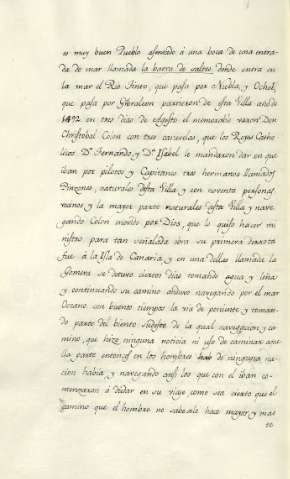 es muy buen Pueblo asentado á una boca de una entra-
da de mar llamada la barra de saltes, donde entra en
la mar el Rio tinto, que pasa por Niebla, y Odiel,
que pasa por Gibraleon partieron de esta Villa año de
1492 en tres dias de Agosto el memorable varon Don
Christobal Colon con tres caravelas, que los Reyes Catho-
licos Dn. Fernando, y Da. Isabel le mandaron dar en que
iban por pilotos y Capitanes tres hermanos llamados
Pinzones, naturales desta Villa, y con noventa personas,
manos y la mayor parte naturales desta Villa, y nave-
gando Colon movido por Dios, que lo quiso hacer mi
nistro para tan señalada obra su primera derrota
fue á la Isla de Canaria, y en una dellas llamada la
Gomera se detuvo ciertos dias tomando agua y leña
y continuando su camino anduvo navegando por el mar
Oceano con buenos tiempos la via de poniente, y toman-
do parte del viento Sudoeste de la qual navegacion y ca-
mino, que hizo ninguna noticia ni uso de caminar aque-
lla parte entonces en los hombres de ninguna na-
cion habia, y navegando assi los que con el iban co-
menzaron á dudar en su viaje como sea cierto que el
camino que el hombre no sabe se le hace mayor y mas